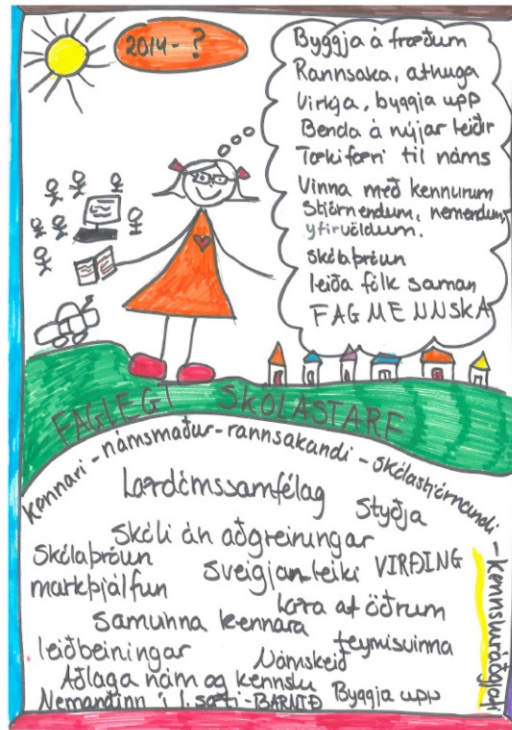 2014 - ?
Byggja á fræðum
Rannsaka, athuga
Virkja, byggja upp
Benda á nýjar leiðir
Tækifæri til náms
Vinna með kennurum
Stjórnendum, nemendum,
yfirvöldum.
skólaþróun
leiða fólk saman
FAGMENNSKA
FAGLEGT SKÓLASTARF
Kennari - námsmaður - rannsakandi - skólastjórnandi - kennsluráðgjafi
Lærdómssamfélag
Styðja
Skóli án aðgreiningar
Skólaþróun
Sveigjanleiki VIRÐING
markþjálfun
Læra af öðrum
Samvinna kennara
teymisvinna
leiðbeiningar
Námskeið
Aðlaga nám og kennslu
Nemandinn í 1. sæti - BARNIÐ Byggja upp